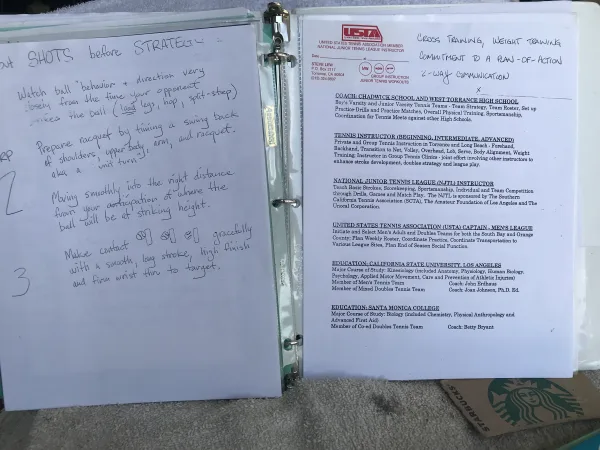 SHOTS before STRATEGY
Watch ball behavior + direction very
closely from the time your opponent
strikes the ball (load legs, hop, split-step)
Prepare racquet by timing a swing back
of shoulders, upper body, arm, and racquet.
aka a "unit turn".
2
Moving smoothly into the right distance
from your anticipation of where the
ball will be at striking height.
3
Make contact gracefully
with a smooth, long stroke, high finish
and firm wrist thru to target.
USTA
UNITED STATES TENNIS ASSOCIATION MEMBER
NATIONAL JUNIOR TENNIS LEAGUE INSTRUCTOR
Date
STEVE
P.O. Box
Torrance, CA
GROUP INSTRUCTION
JUNIOR TENNIS WORKOUTS
CROSS TRAINING, WEIGHT TRAINING
COMMITMENT TO A PLAN-OF-ACTION
2-WAY COMMUNICATION
X
COACH: CHADWICK SCHOOL AND WEST TORRANCE HIGH SCHOOL
Boy's Varsity and Junior Varsity Tennis Teams - Team Strategy, Team Roster, Set up
Practice Drills and Practice Matches, Overall Physical Training, Sportsmanship,
Coordination for Tennis Meets against other High Schools.
TENNIS INSTRUCTOR (BEGINNING, INTERMEDIATE, ADVANCED)
Private and Group Tennis Instruction in Torrance and Long Beach - Forehand,
Backhand, Transition to Net, Volley, Overhead, Lob, Serve, Body Alignment, Weight
Training; Instructor in Group Tennis Clinics - joint effort involving other instructors to
enhance stroke development, doubles strategy and league play.
NATIONAL JUNIOR TENNIS LEAGUE (NJTL) INSTRUCTOR
Teach Basic Strokes, Scorekeeping, Sportsmanship, Individual and Team Competition
through Drills, Games and Match Play. The NJTL is sponsored by The Southern
California Tennis Association (SCTA), The Amateur Foundation of Los Angeles and The
Unocal Corporation.
UNITED STATES TENNIS ASSOCIATION (USTA) CAPTAIN - MEN'S LEAGUE
Initiate and Select Men's Adult and Doubles Teams for both the South Bay and Orange
County; Plan Weekly Roster, Coordinate Practice, Coordinate Transportation to
Various League Sites, Plan End of Season Social Function.
EDUCATION: CALIFORNIA STATE UNIVERSITY, LOS ANGELES
Major Course of Study: Kinesiology (included Anatomy, Physiology, Human Biology,
Psychology, Applied Motor Movement, Care and Prevention of Athletic Injuries)
Member of Men's Tennis Team Coach: John Erdhaus
Member of Mixed Doubles Tennis Team Coach: Joan Johnson, Ph.D. Ed.
EDUCATION: SANTA MONICA COLLEGE
Major Course of Study: Biology (included Chemistry, Physical Anthropology and
Advanced First Aid)
Member of Co-ed Doubles Tennis Team Coach: Betty Bryant
STARBUCKS